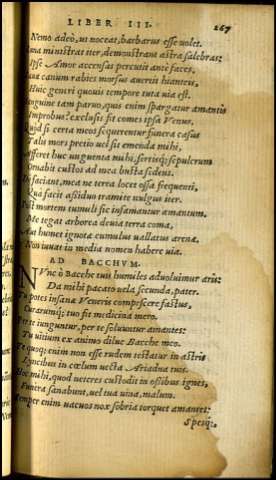 LIBER III. 267
Nemo adeò, ut noceat, barbarus esse uolet.
Luna ministrat iter, demonstrant astra salebras:
Ipse Amor accensas percutit ante faces,
Sæua canum rabies morsus auertit hianteis,
Huic generi quouis tempore tuta uia est.
Sanguine tam paruo, quis enim spargatur amantis
Improbus? exclusis fit comes ipsa Venus.
Quòd si certa meos sequerentur funera casus
Tali mors pretio uel sit emenda mihi,
Afferet huc unguenta mihi, sertisq; sepulcrum
Ornabit custos ad mea busta sedens.
Di faciant, mea ne terra locet ossa frequenti,
Qua facit assiduo tramite uulgus iter.
Post mortem tumuli sic infamantur amantum.
Me tegat arborea deuia terra coma,
Aut humet ignotæ cumulus uallatus arenæ,
Non iuuat in media nomen habere uia.
AD BACCHVM.
NVnc ò Bacche tuis humiles aduoluimur aris:
Da mihi pacato uela secunda, pater.
Tu potes insanæ Veneris compescere fastus,
Curarumq; tuo fit medicina mero.
Per te iunguntur, per te soluuntur amantes:
Tu uitium ex animo dilue Bacche meo.
Te quoq; enim non esse rudem testatur in astris
Lyncibus in cœlum uecta Ariadna tuis.
Hoc mihi, quod ueteres custodit in ossibus ignes,
Funera sanabunt, uel tua uina, malum.
Semper enim uacuos nox sobria torquet amantes:
Spesq;